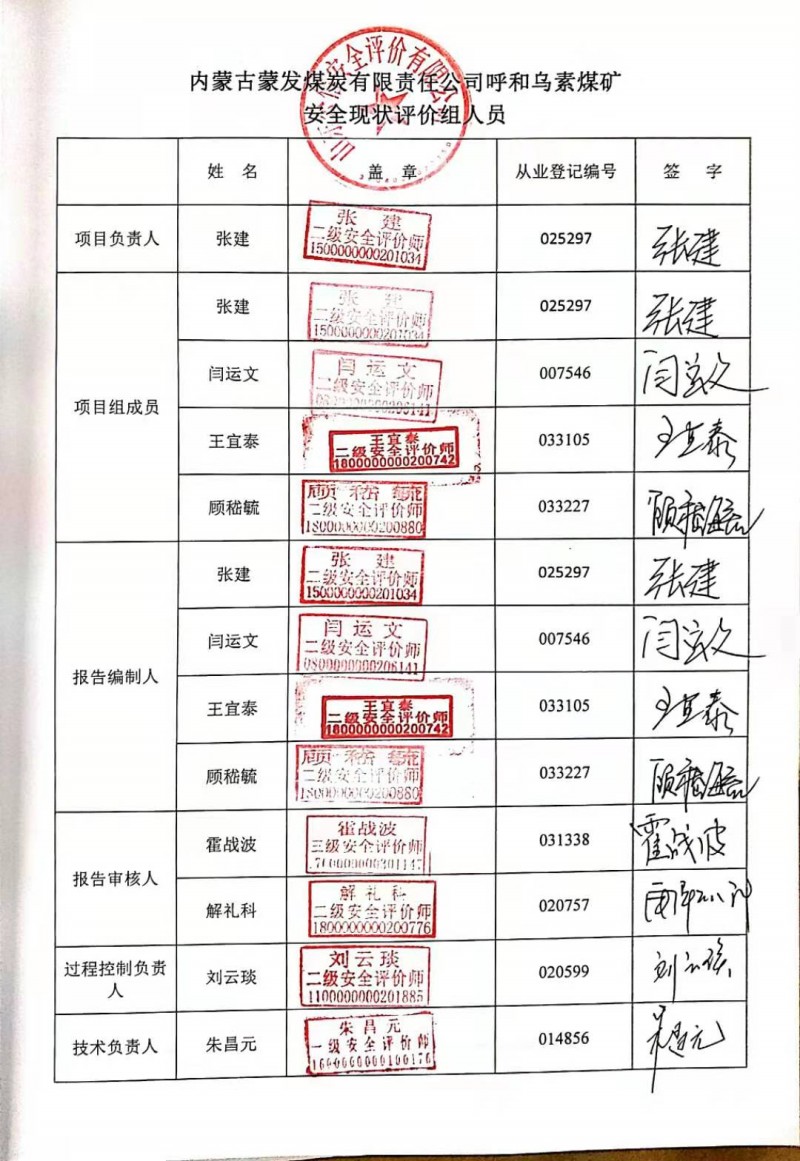 内蒙古蒙发煤炭有限责任公司呼和乌素煤矿
安全现状评价组人员
安全评价有限公司
姓 名 盖 章 从业登记编号 签 字
项目负责人 张建 025297 张建
张 建
二级安全评价师
1500000000201034
项目组成员
张建 025297 张建
张 建
二级安全评价师
1500000000201034
闫运文 007546 闫运文
闫 运 文
二级安全评价师
王宜泰 033105 王宜泰
王宜泰
二级安全评价师
1800000000200742
顾嵇毓 033227 顾嵇毓
顾 嵇 毓
二级安全评价师
1800000000200880
报告编制人
张建 025297 张建
张 建
二级安全评价师
1500000000201034
闫运文 007546 闫运文
闫 运 文
二级安全评价师
0800000000206141
王宜泰 033105 王宜泰
王宜泰
二级安全评价师
1800000000200742
顾嵇毓 033227 顾嵇毓
顾 嵇 毓
二级安全评价师
1800000000200880
报告审核人
霍战波 031338 霍战波
霍战波
三级安全评价师
解礼科 020757
解 礼 科
二级安全评价师
1800000000200776
过程控制负责
人
刘云琰 020599 刘云琰
刘云琰
二级安全评价师
1100000000201885
技术负责人 朱昌元 014856 朱昌元
朱 昌 元
一级安全评价师
1600000000100176